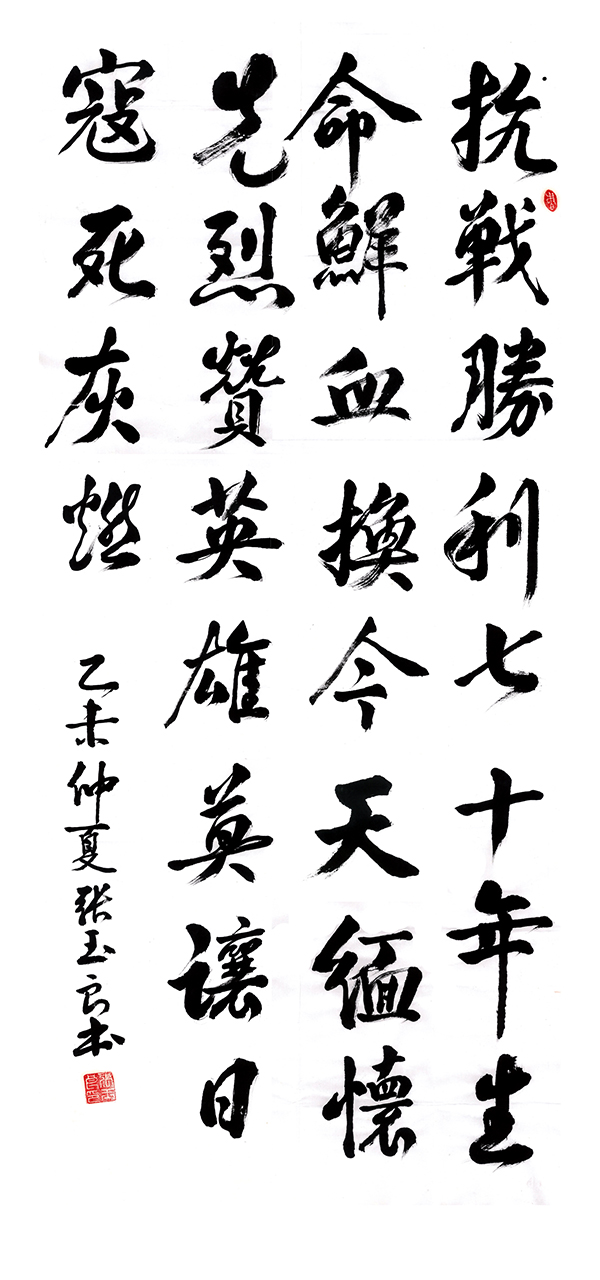 抗戰勝利七十年生
命鮮血換今天緬懷
先烈贊英雄莫讓日
寇死灰燃
乙未仲夏张玉良书